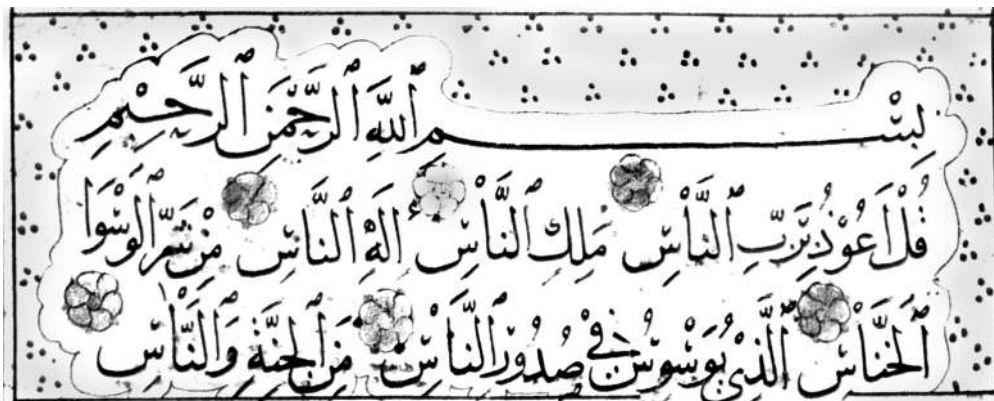 بِسْمِ ٱللَّهِ ٱلرَّحْمَنِ ٱلرَّحِيْمِ
قُلْ اَعُوْذُ بِرَبِّ ٱلنَّاْسِ مَلِكِ ٱلنَّاْسِ اِلَهِ ٱلنَّاْسِ مِنْ شَرِّ ٱلْوَسْوَا
ٱلْخَنَّاْسِ ٱلَّذِيْ يُوَسْوِسُ فِيْ صُدُوْرِ ٱلنَّاْسِ مِنَ ٱلْجِنَّةِ وَٱلنَّاْسِ